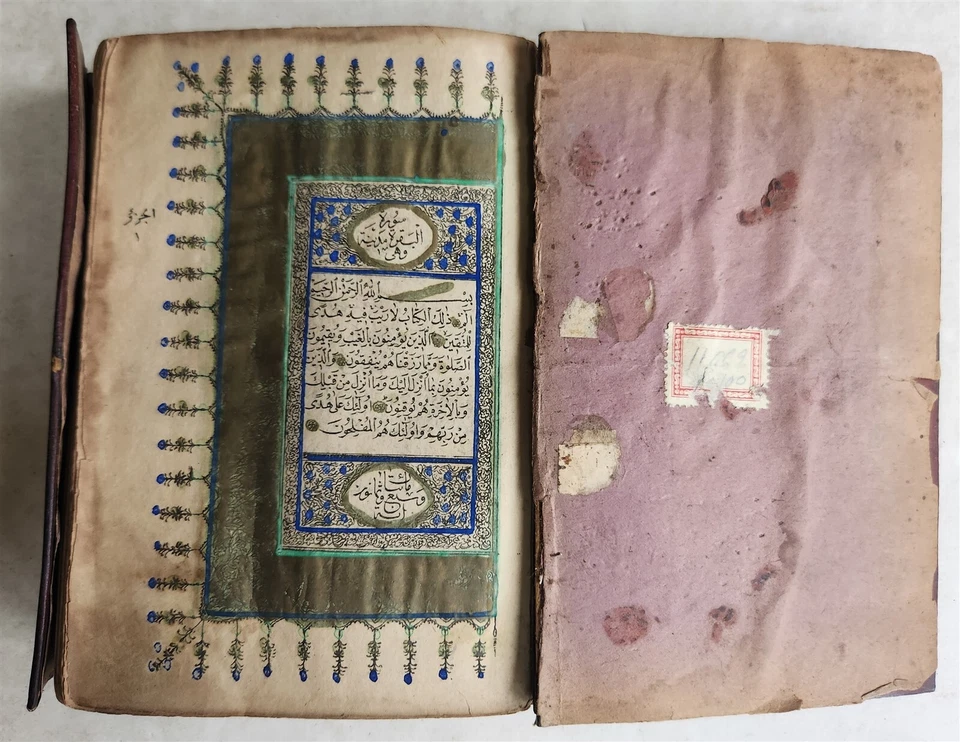 سورة
البقرة مدنية
وهى
بسم الله الرحمن الرحيم
الم ذلك الكتاب لا ريب فيه هدى
للمتقين الذين يؤمنون بالغيب ويقيمون
الصلوة ومما رزقناهم ينفقون والذين
يؤمنون بما انزل اليك وما انزل من قبلك
وبالاخرة هم يوقنون اولئك على هدى
من ربهم واولئك هم المفلحون
مائتا
وسبع وثمانون
اية